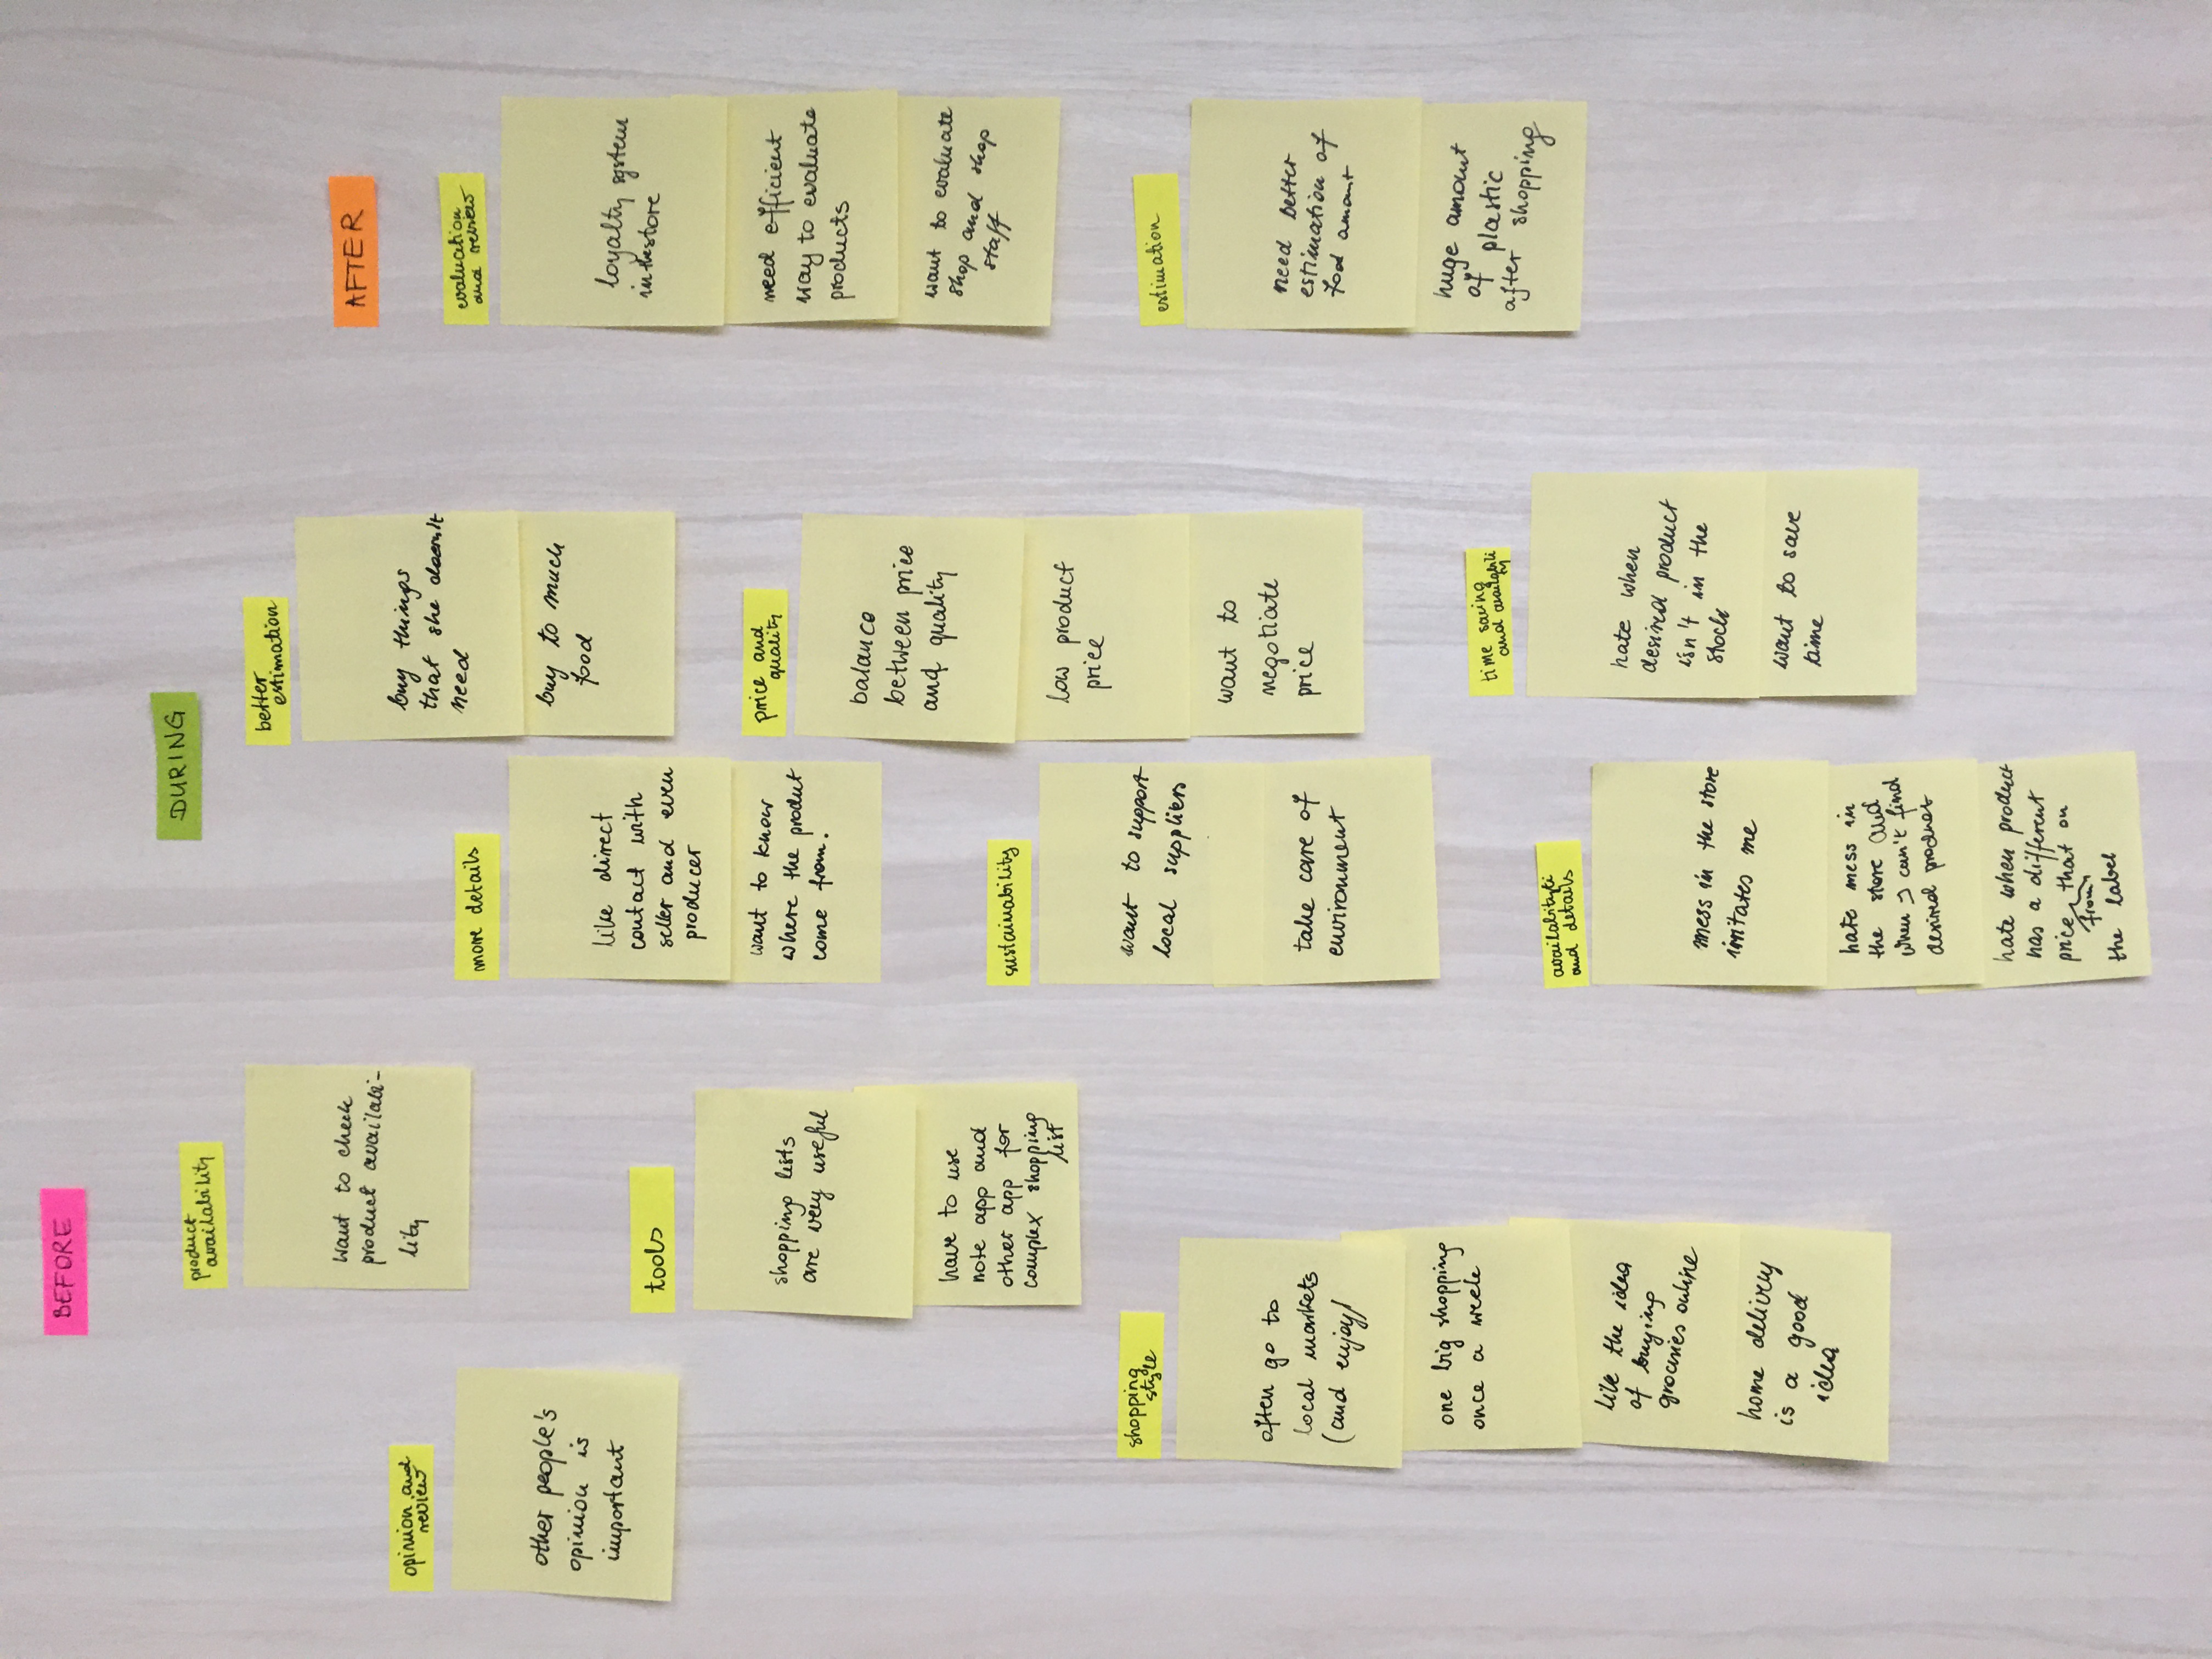 BEFORE
product
availability
want to check
product availabi-
lity
opinion and
review
other people's
opinion is
important
tools
shopping lists
are very useful
have to use
note app and
other app for
complex shopping
list
shopping
style
often go to
local markets
(and enjoy)
one big shopping
once a week
like the idea
of buying
groceries online
home delivery
is a good
idea
DURING
more details
like direct
contact with
seller and even
producer
want to know
where the produt
come from.
sustainability
want to support
local suppliers
take care of
environment
availabityti
and details
mess in the store
irritates me
hate mess in
the store and
when I can't find
desired product
hate when product
has a different
price that on
from
the label
better
estimation
buy things
that she doesn't
need
buy to much
food
price and
quality
balance
between price
and quality
low product
price
want to
negotiate
price
time saving
and availabili
ty
hate when
desired product
isn't in the
stock
want to save
time
AFTER
evaluation
and review
loyalty system
in the store
need efficient
way to evaluate
products
want to evaluate
shop and shop
staff
estimation
need better
estimation of
food amount
huge amount
of plastic
after shopping